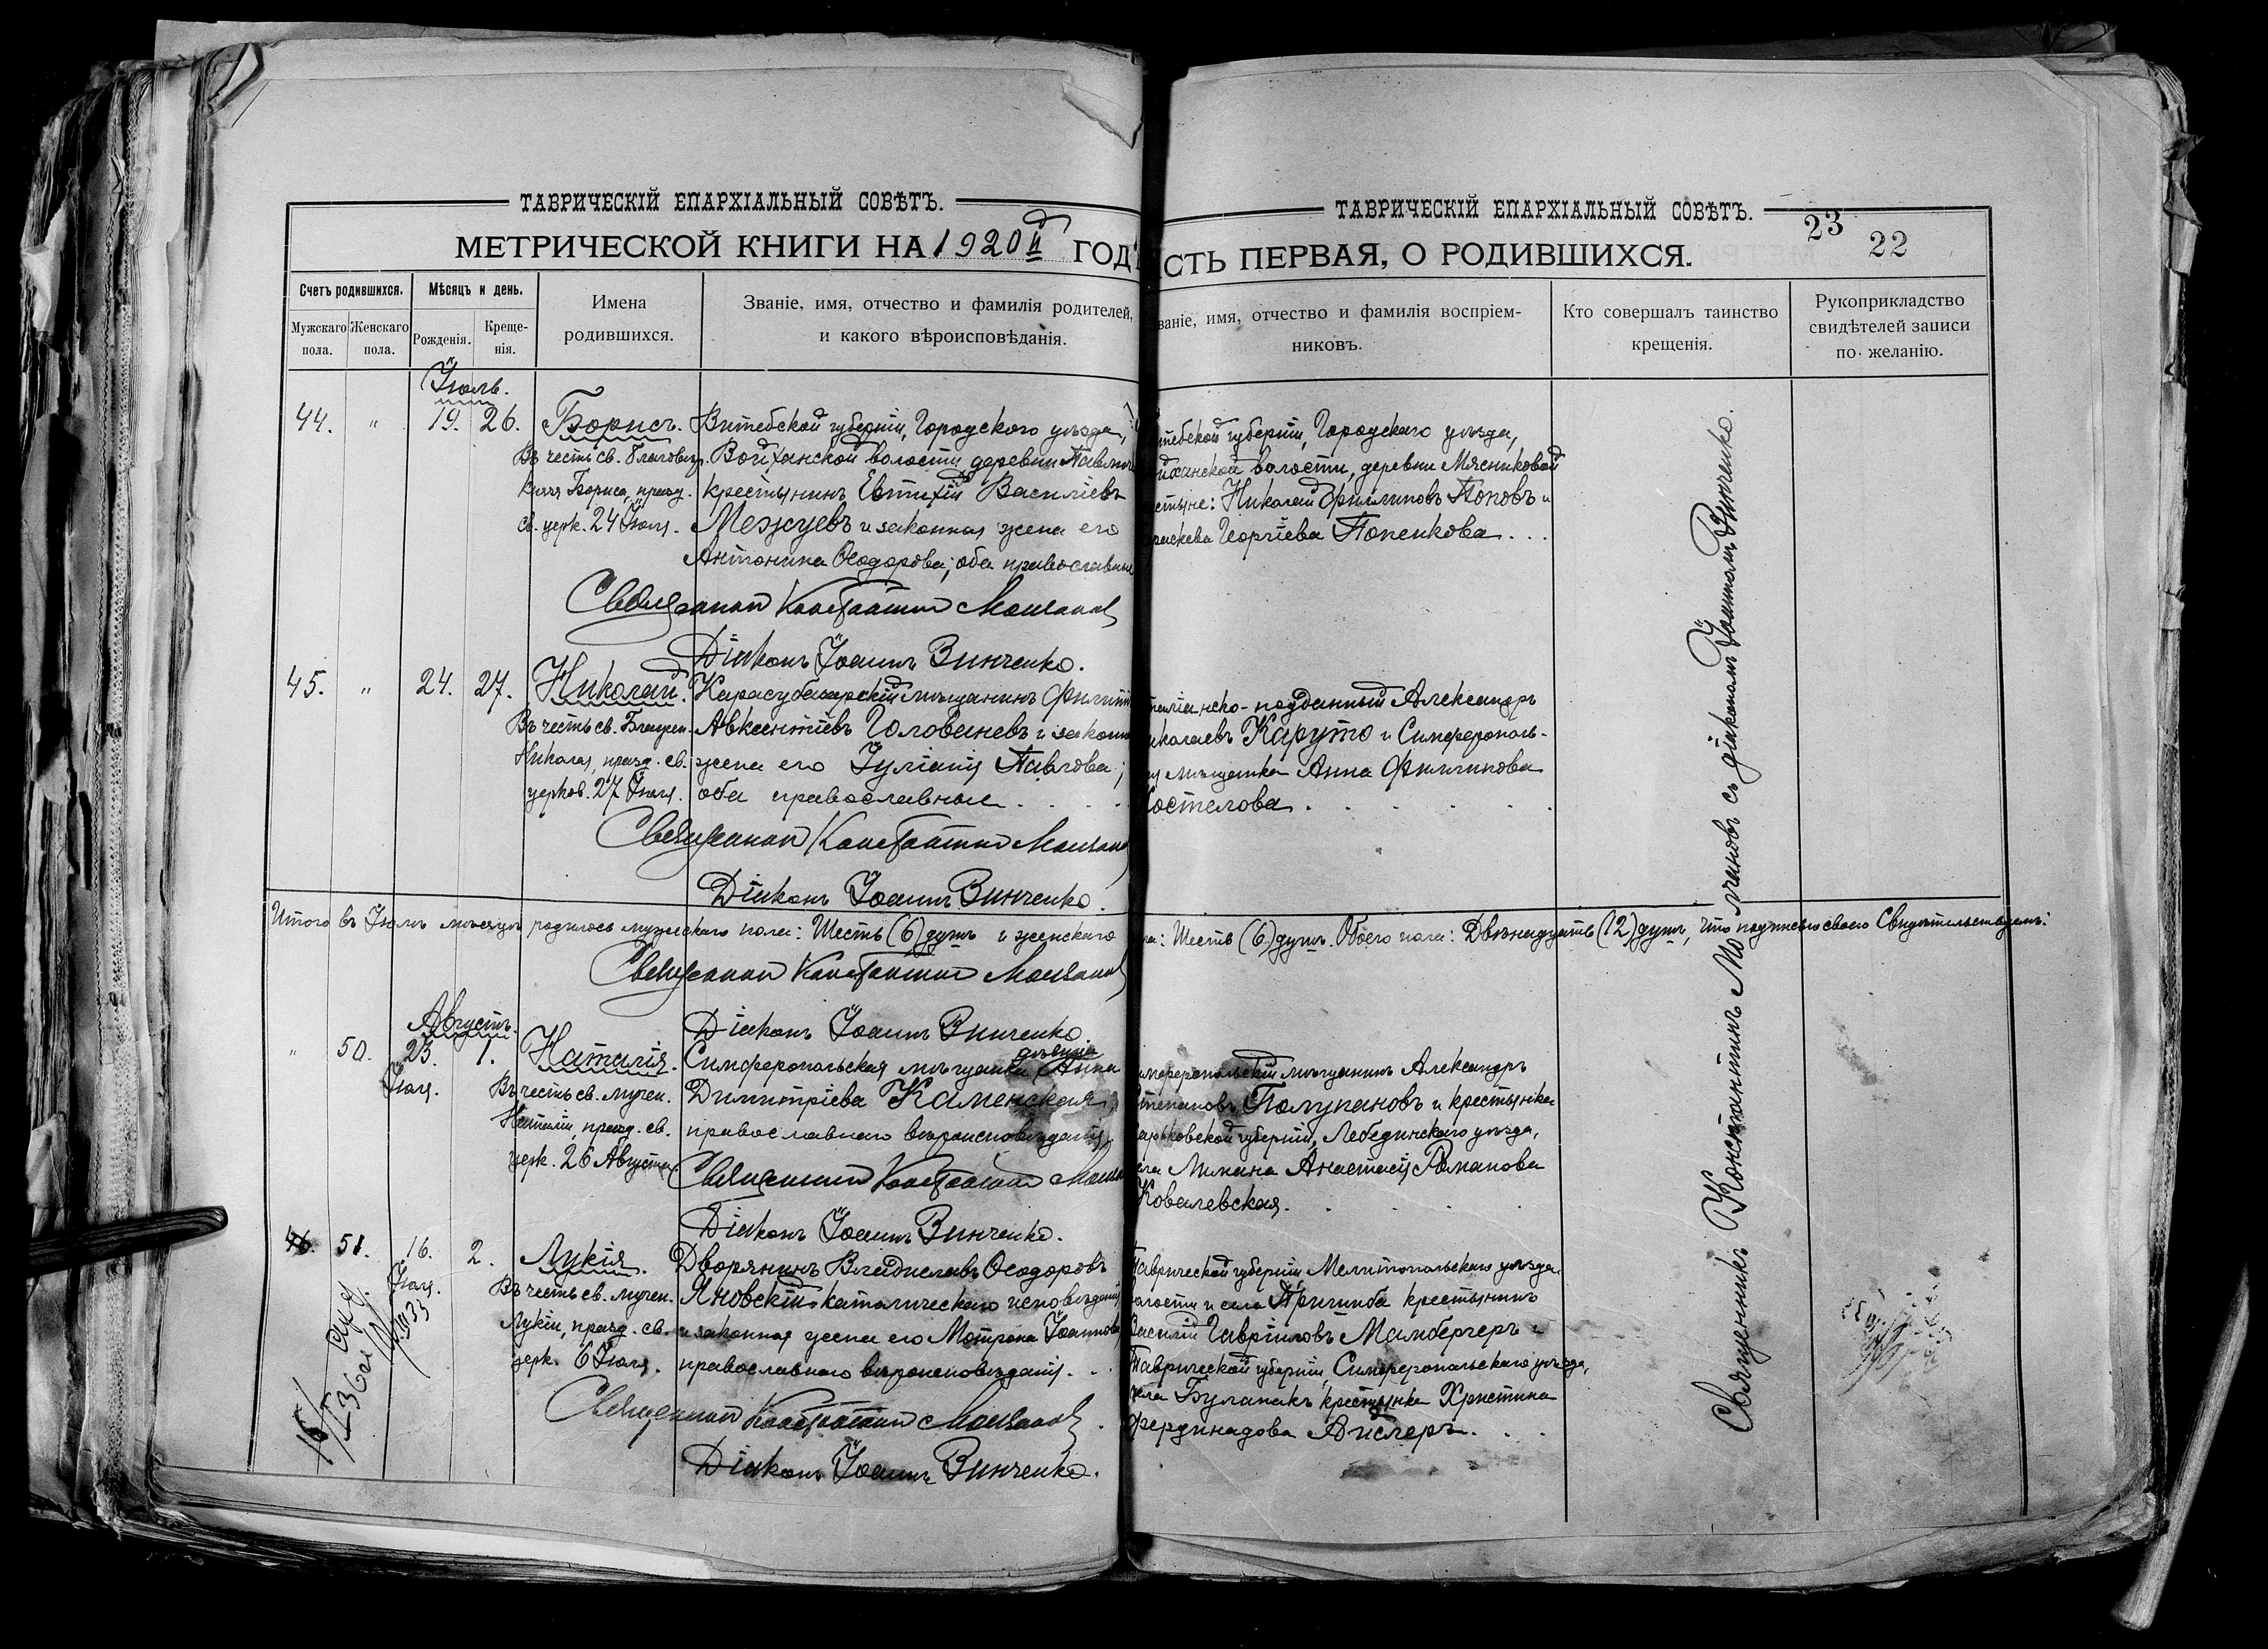 ТАВРИЧЕСКІЙ ЕПАРХІАЛЬНЫЙ СОВѢТЪ.
МЕТРИЧЕСКОЙ КНИГИ НА 1920й ГОДЪ
Счетъ родившихся.
Мѣсяцъ и день.
Имена родившихся.
Званіе, имя, отчество и фамилія родителей,
и какого вѣроисповѣданія.
Мужскаго пола.
Женскаго пола.
Рожденія.
Креще-
нія.
Іюль.
44. " 19. 26. Борисъ.
Въ честь св. Благовѣр.
Князя Бориса, празд.
св. церк. 24 Іюля.
Витебской губерніи, Городскаго уѣзда,
Войханской волости деревни
крестьянинъ Евтихій Василіевъ
Межуевъ и законная жена его
Антонина Ѳеодорова; оба православные
Священникъ Константинъ Молчановъ
Діаконъ Іоаннъ Винченко.
45. " 24. 27. Николай.
Въ честь св. Блажен.
Николая, празд. св.
церков. 27 Іюля.
Карасубазарскій мѣщанинъ Филиппъ
Авксентіевъ Голованевъ и законн
жена его Іуліанія Павлова;
оба православные . . . .
Священникъ Константинъ Молчановъ
Діаконъ Іоаннъ Винченко.
Итого въ Іюлѣ мѣсяцѣ родилось мужескаго пола: Шесть (6) душъ и женскаго
Священникъ Константинъ Молчановъ
Діаконъ Іоаннъ Винченко.
Августъ.
" 50. 23. Іюля. 1. Наталія.
Въ честь св. мучен.
Наталіи, празд. св.
церк. 26 Августа.
Симферопольская мѣщанка дѣвица Анна
Димитріева Каменская,
православнаго вѣроисповѣданія
Священникъ Константинъ Молчановъ
Діаконъ Іоаннъ Винченко.
46. 51. 16. Іюля. 2. Лукія.
Въ честь св. мучен.
Лукіи, празд. св.
церк. 6 Іюля.
Дворянинъ Владиславъ Ѳеодоровъ
Яновскій католическаго исповѣданія
и законная жена его Матрона Іоаннова
православнаго вѣроисповѣданія. . .
Священникъ Константинъ Молчановъ.
Діаконъ Іоаннъ Винченко.
ТАВРИЧЕСКІЙ ЕПАРХІАЛЬНЫЙ СОВѢТЪ.
23
22
СТЬ ПЕРВАЯ, О РОДИВШИХСЯ.
Званіе, имя, отчество и фамилія воспріем-
никовъ.
Кто совершалъ таинство
крещенія.
Рукоприкладство
свидѣтелей записи
по желанію.
тебской губерніи, Городскаго уѣзда,
йханской волости, деревни Мясниковой
стьяне: Николай Филиповъ Поповъ и
раскева Георгіева Попенкова . . .
таліанско-подданный Александръ
иколаевъ Каруто и Симферополь-
ая мѣщанка Анна Филиппова
Костелова . . . . .
ла: Шесть (6) душъ. Обоего пола: Двѣнадцать (12) душъ, что подписью своею Свидѣтельствуемъ:
имферопольскій мѣщанинъ Александръ
Степановъ Полупановъ и крестьянка
Харьковской губерніи, Лебединскаго уѣзда,
ела Лимана Анастасія Романова
Ковалевская. . . . .
Таврической губерніи Мелитопольскаго уѣзда,
волости и села Пришиба крестьянинъ
Василій Гавріиловъ Мамбергеръ и
Таврической губерніи, Симферопольскаго уѣзда,
села Булганакъ крестьянка Христина
Фердинадова Айслеръ. . . .
Священникъ Константинъ Молчановъ съ діакономъ Іоанномъ Винченко.